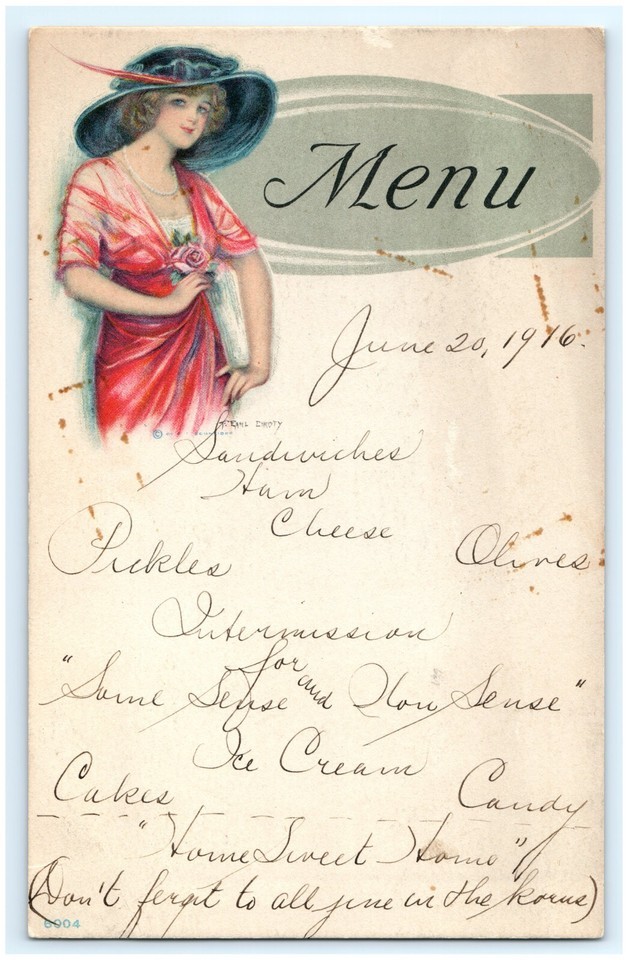 Menu
June 20, 1916.
© 
F. EARL CHRISTY
Sandwiches
Ham
Cheese
Pickles Olives
Intermission
for
"Some Sense and Non Sense"
Ice Cream
Cakes Candy
"Home Sweet Home"
(Don't fergit to all jine in the korus)
6904